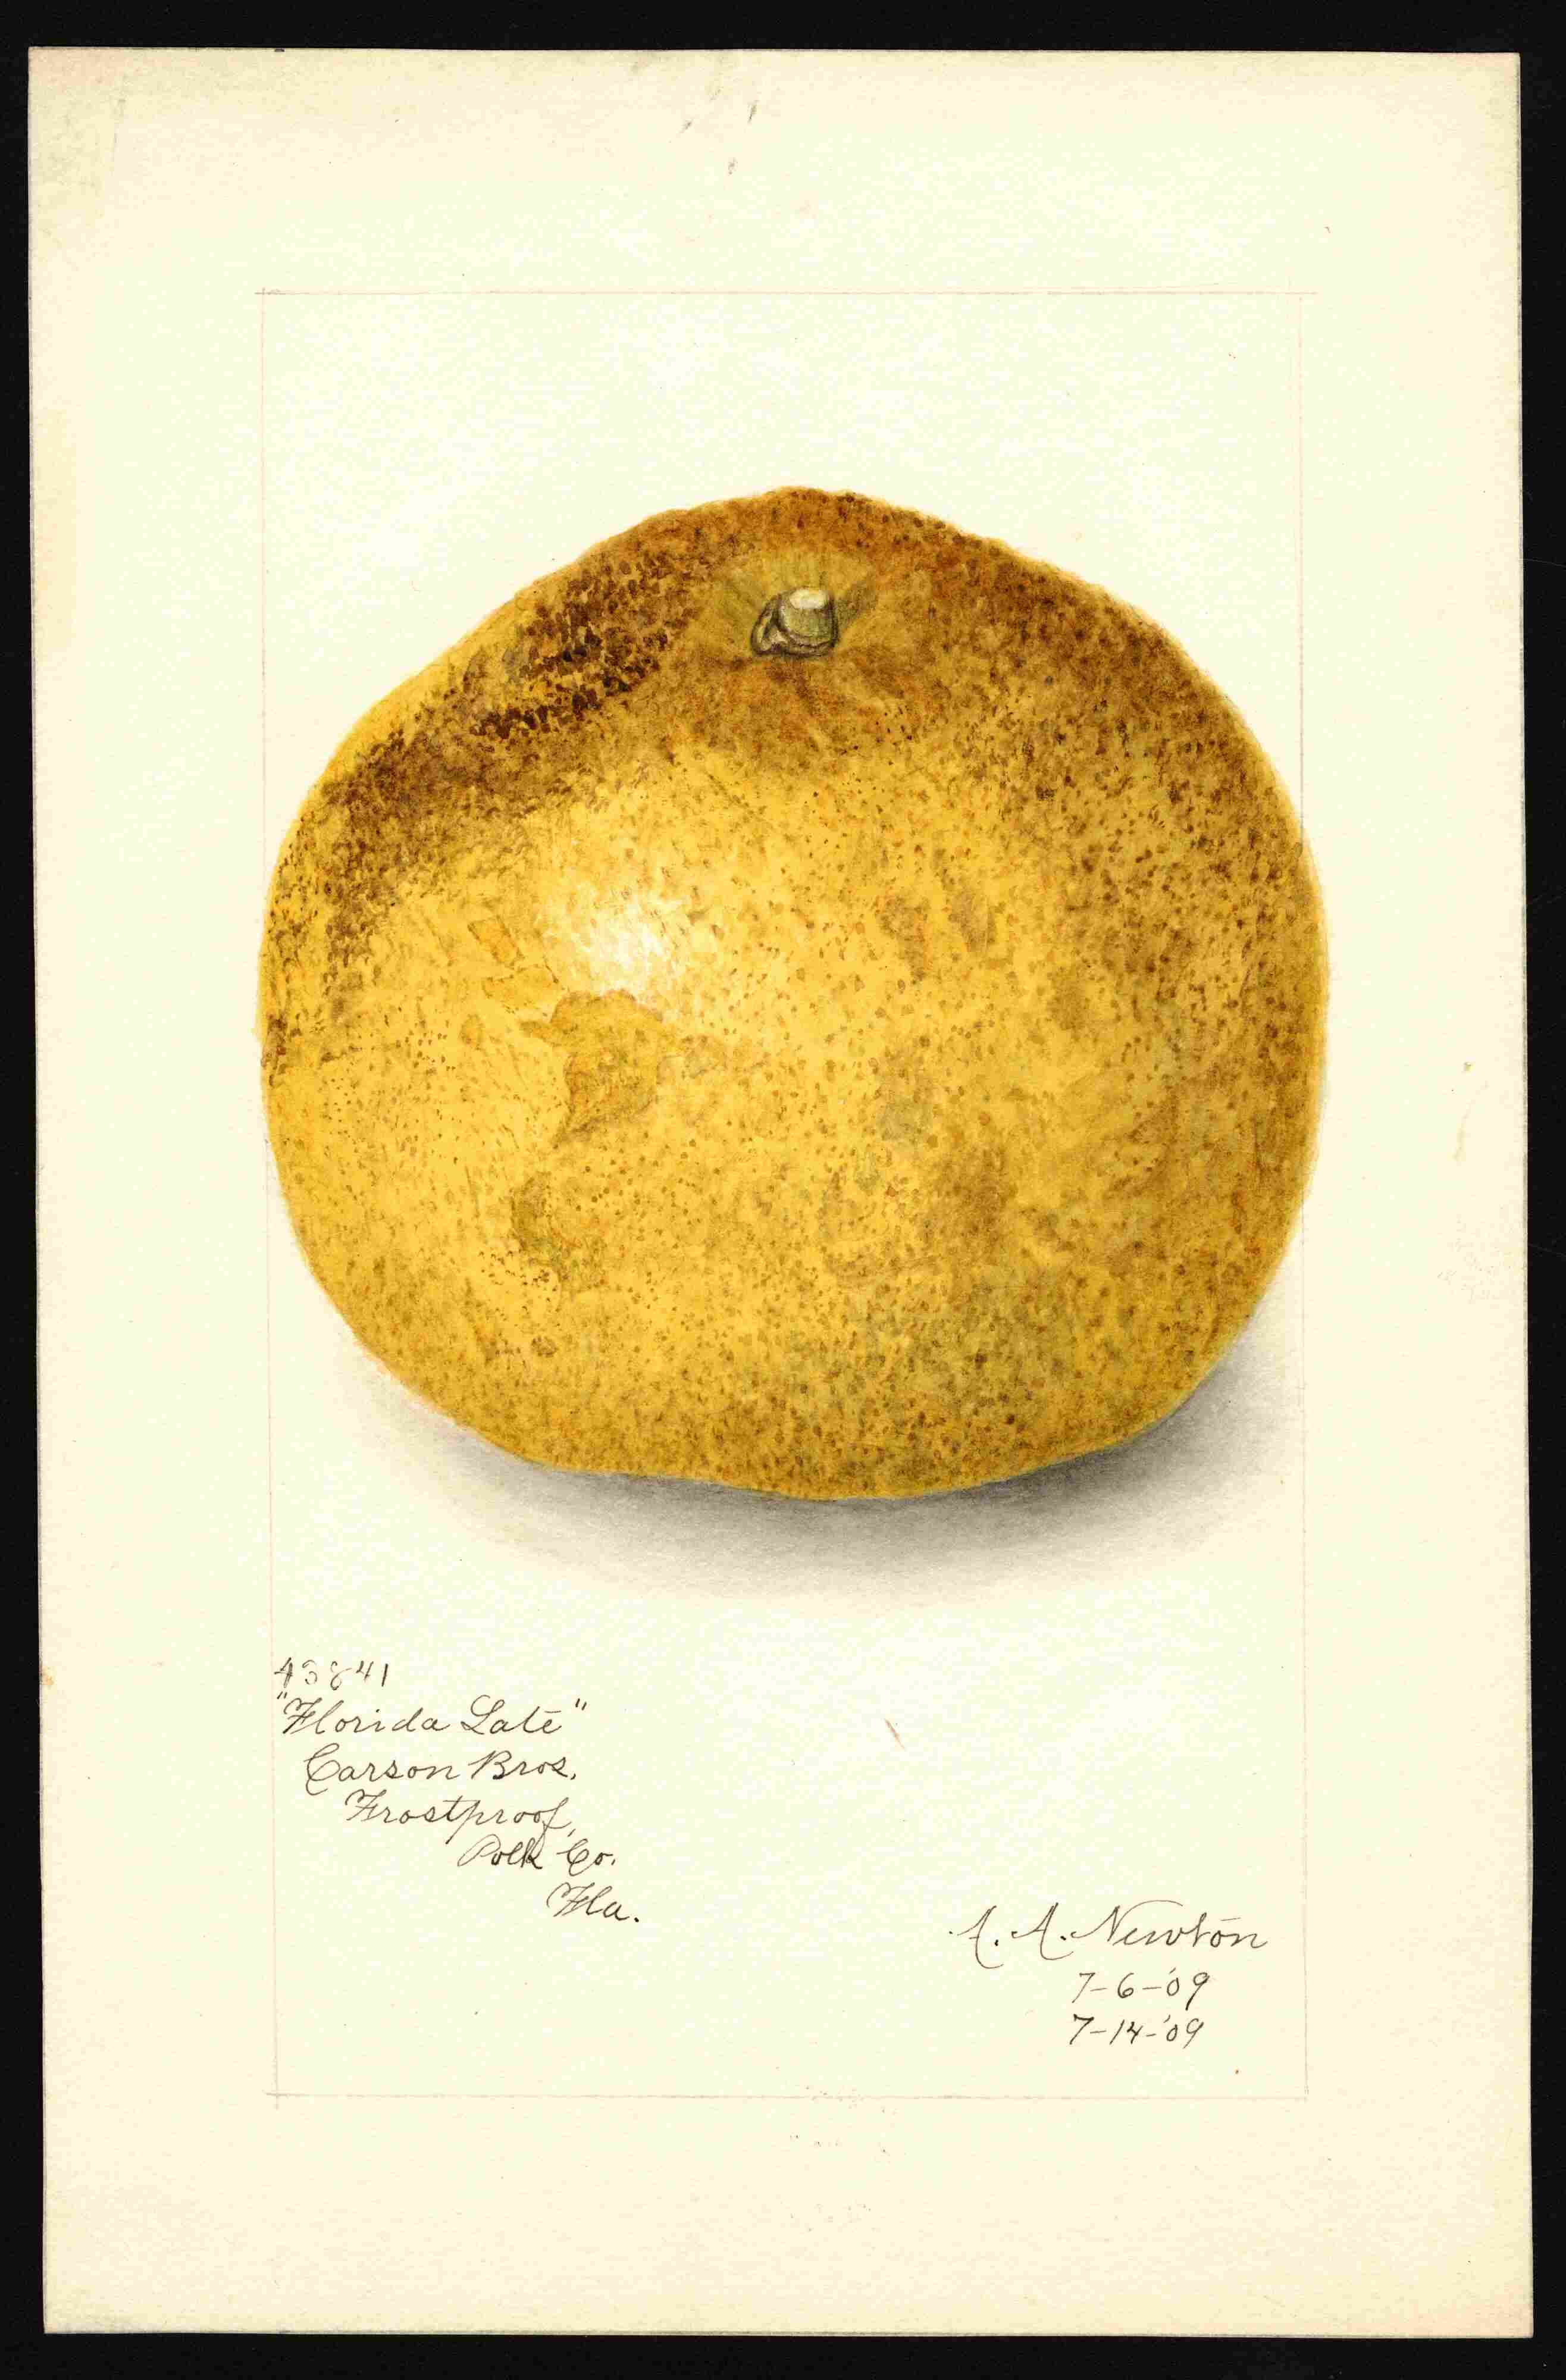 43841
"Florida Late"
Carson Bros.
Frostproof,
Polk Co.
Fla.
A. A. Newton
7-6-'09
7-14-'09